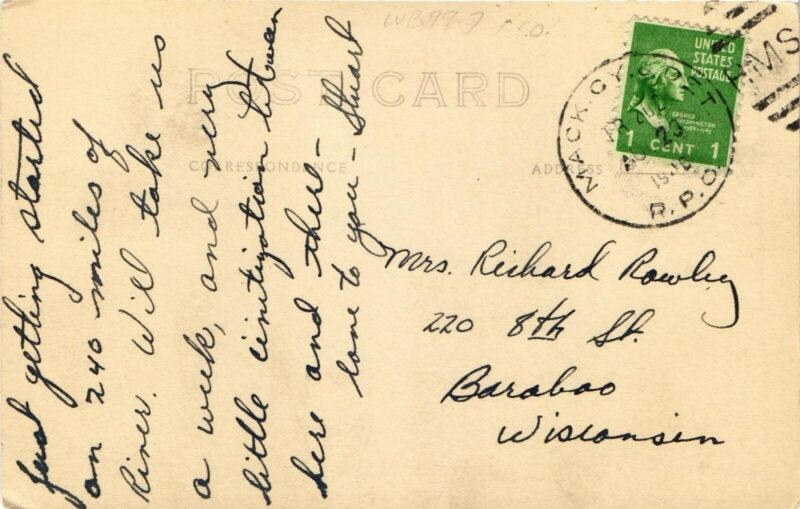 WB99-7
POST CARD
CORRESPONDENCE
ADDRESS
UNITED
STATES
POSTAGE
GEORGE
WASHINGTON
1789-1797
1 CENT 1
MACK. CY. & R.P.O.
TR 202
AUG 20
Just getting started
on 240 miles of
River. Will take us
a week, and very
little civilization between
here and there -
love to you - Stuart
Mrs. Richard Rowley
220 8th St.
Baraboo
Wisconsin